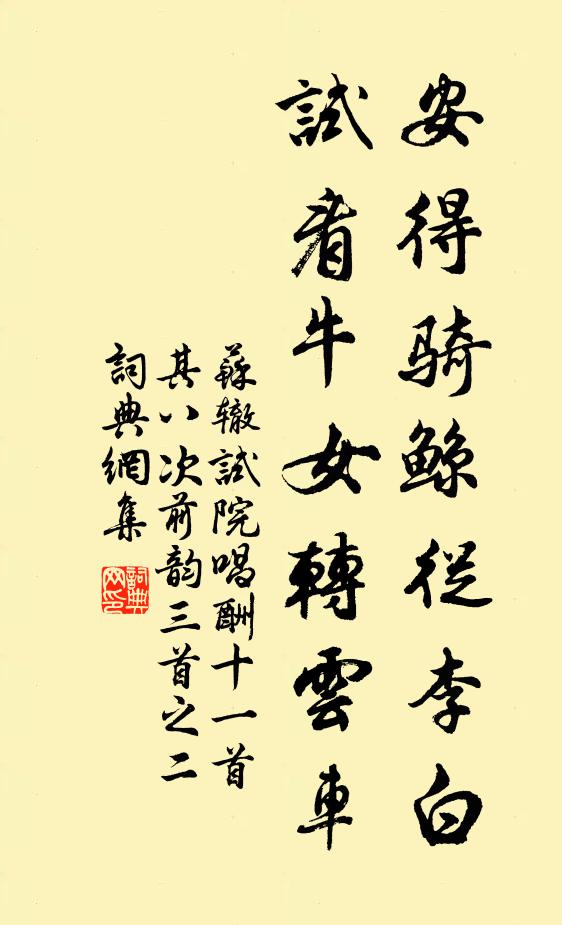 安得騎鯨從李白
試看牛女轉雲車
蘇辙試院唱酬十一首
其八次前韵三首之二
詞典網集
詞典網印